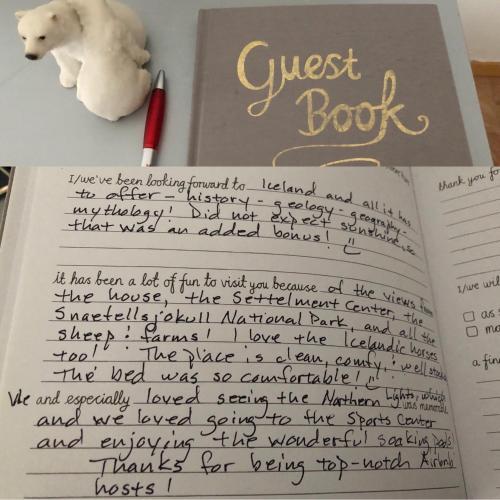 Guest
Book
I/we've been looking forward to Iceland and all it has
to offer - history - geology - geography -
mythology! Did not expect sunshine, so
that was an added bonus!
it has been a lot of fun to visit you because of the views from
the house, the Settelment Center, the
Snaefellsjokull National Park, and all the
sheep farms! I love the Icelandic horses
too! The place is clean, comfy, well stocked
The bed was so comfortable!
We and especially loved seeing the Northern Lights, which
was memorable
and we loved going to the Sports Center
and enjoying the wonderful soaking pools
Thanks for being top-notch Airbnb
hosts!
thank you fo
I/we wil
as
a fin